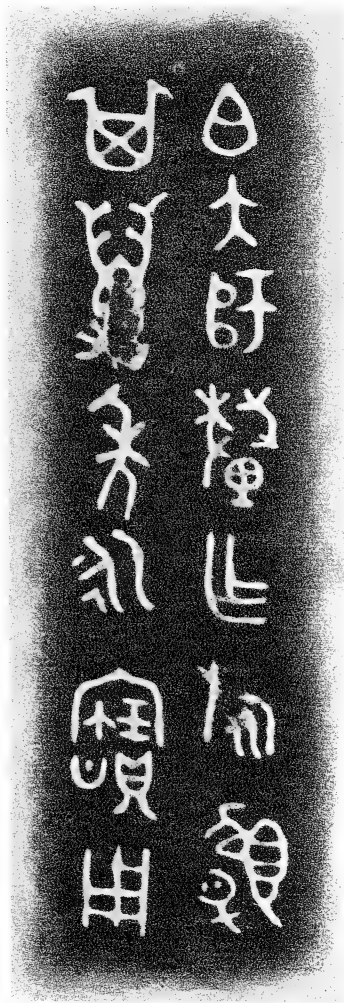 白大師釐乍旅盨
其萬年永寶用